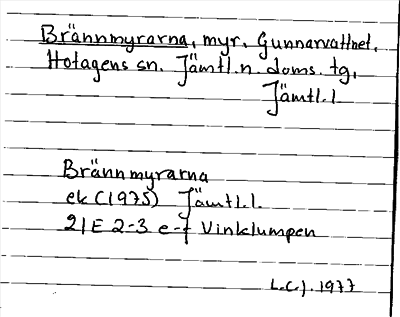 Brännmyrarna, myr, Gunnarvattnet,
Hotagens sn. Jämtl. n. doms. tg,
Jämtl. l
Brännmyrarna
ek (1975) Jämtl. l.
21E 2-3 e-f Vinklumpen
L.C.J. 1977